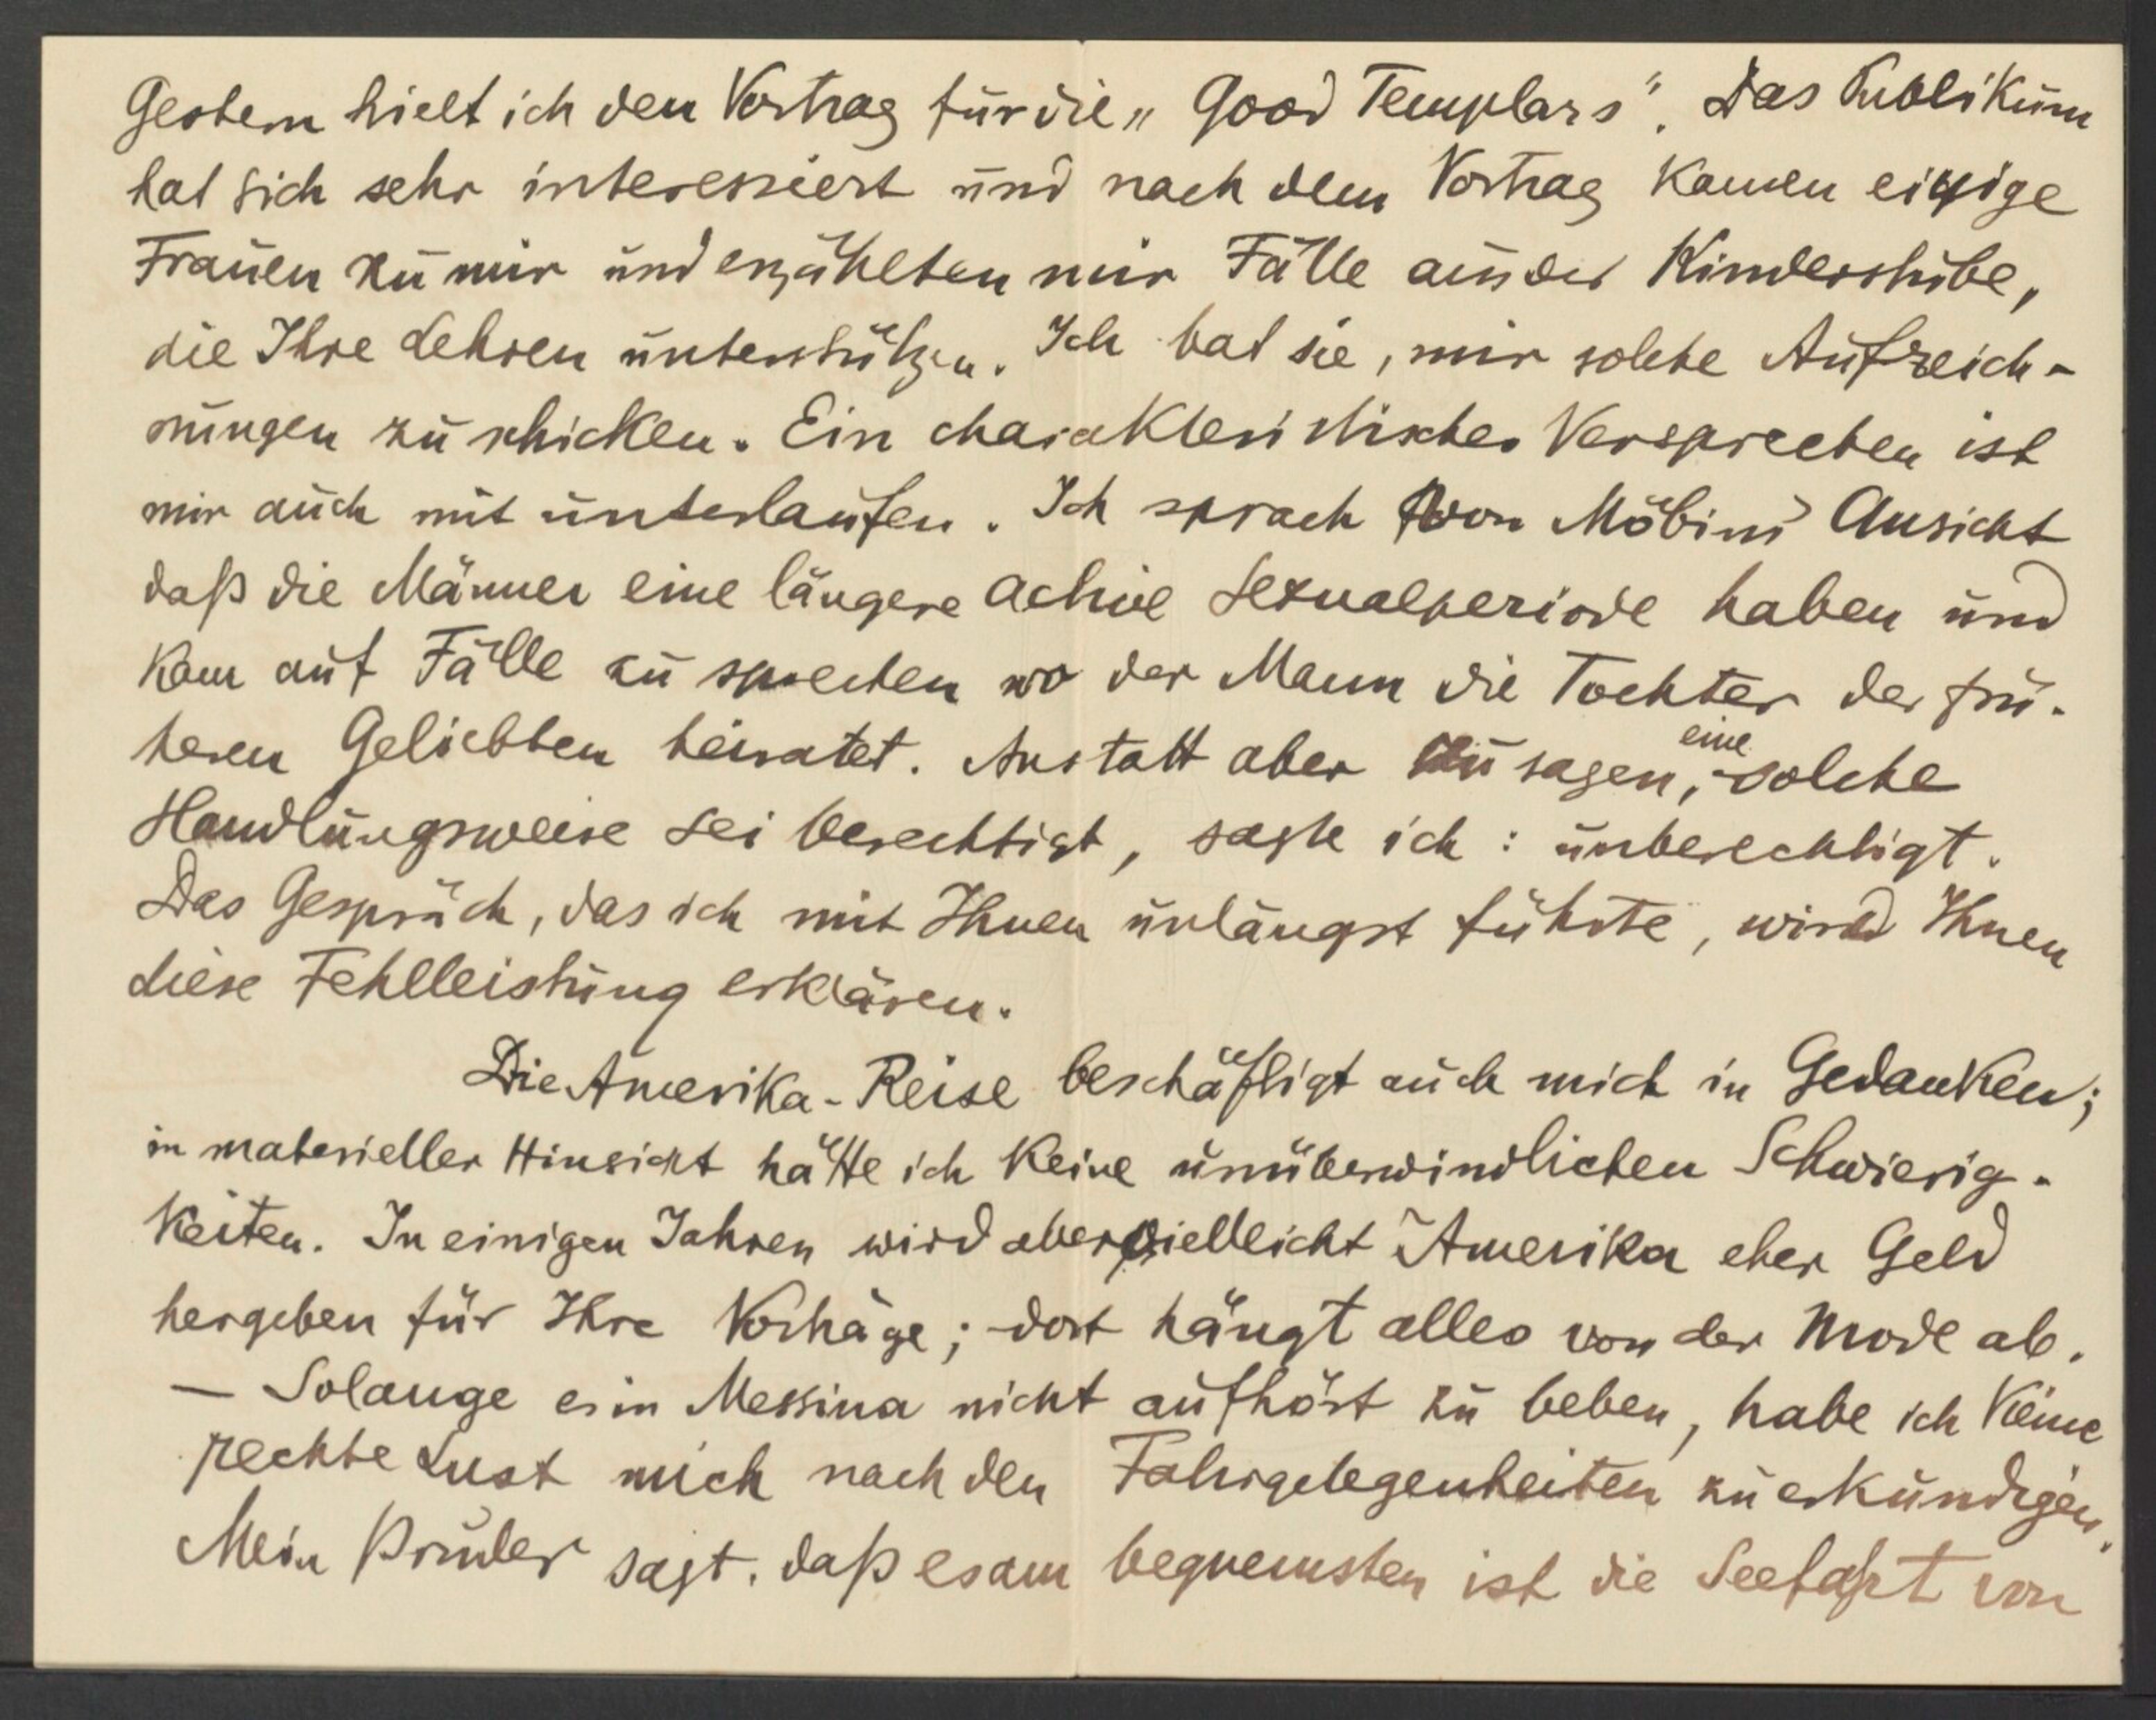 Gestern hielt ich den Vortrag für die „Good Templars“. Das Publikum
hat sich sehr interessiert und nach dem Vortrag kamen einige
Frauen zu mir und erzählten mir Fälle aus der Kinderstube,
die Ihre Lehren unterstützen. Ich bat sie, mir solche Aufzeich-
nungen zu schicken. Ein charakteristisches Versprechen ist
mir auch mit unterlaufen. Ich sprach von Möbius' Ansicht
daß die Männer eine längere active Sexualperiode haben und
kam auf Fälle zu sprechen wo der Mann die Tochter der frü-
heren Geliebten heiratet. Anstatt aber zu sagen, eine solche
Handlungsweise sei berechtigt, sagte ich: unberechtigt.
Das Gespräch, das ich mit Ihnen unlängst führte, wird Ihnen
diese Fehlleistung erklären.
Die Amerika-Reise beschäftigt auch mich in Gedanken;
in materieller Hinsicht hätte ich keine unüberwindlichen Schwierig-
keiten. In einigen Jahren wird aber vielleicht Amerika eher Geld
hergeben für Ihre Vorträge; dort hängt alles von der Mode ab.
— Solange es in Messina nicht aufhört zu beben, habe ich keine
rechte Lust mich nach den Fahrgelegenheiten zu erkundigen.
Mein Bruder sagt, daß es am bequemsten ist die Seefahrt von